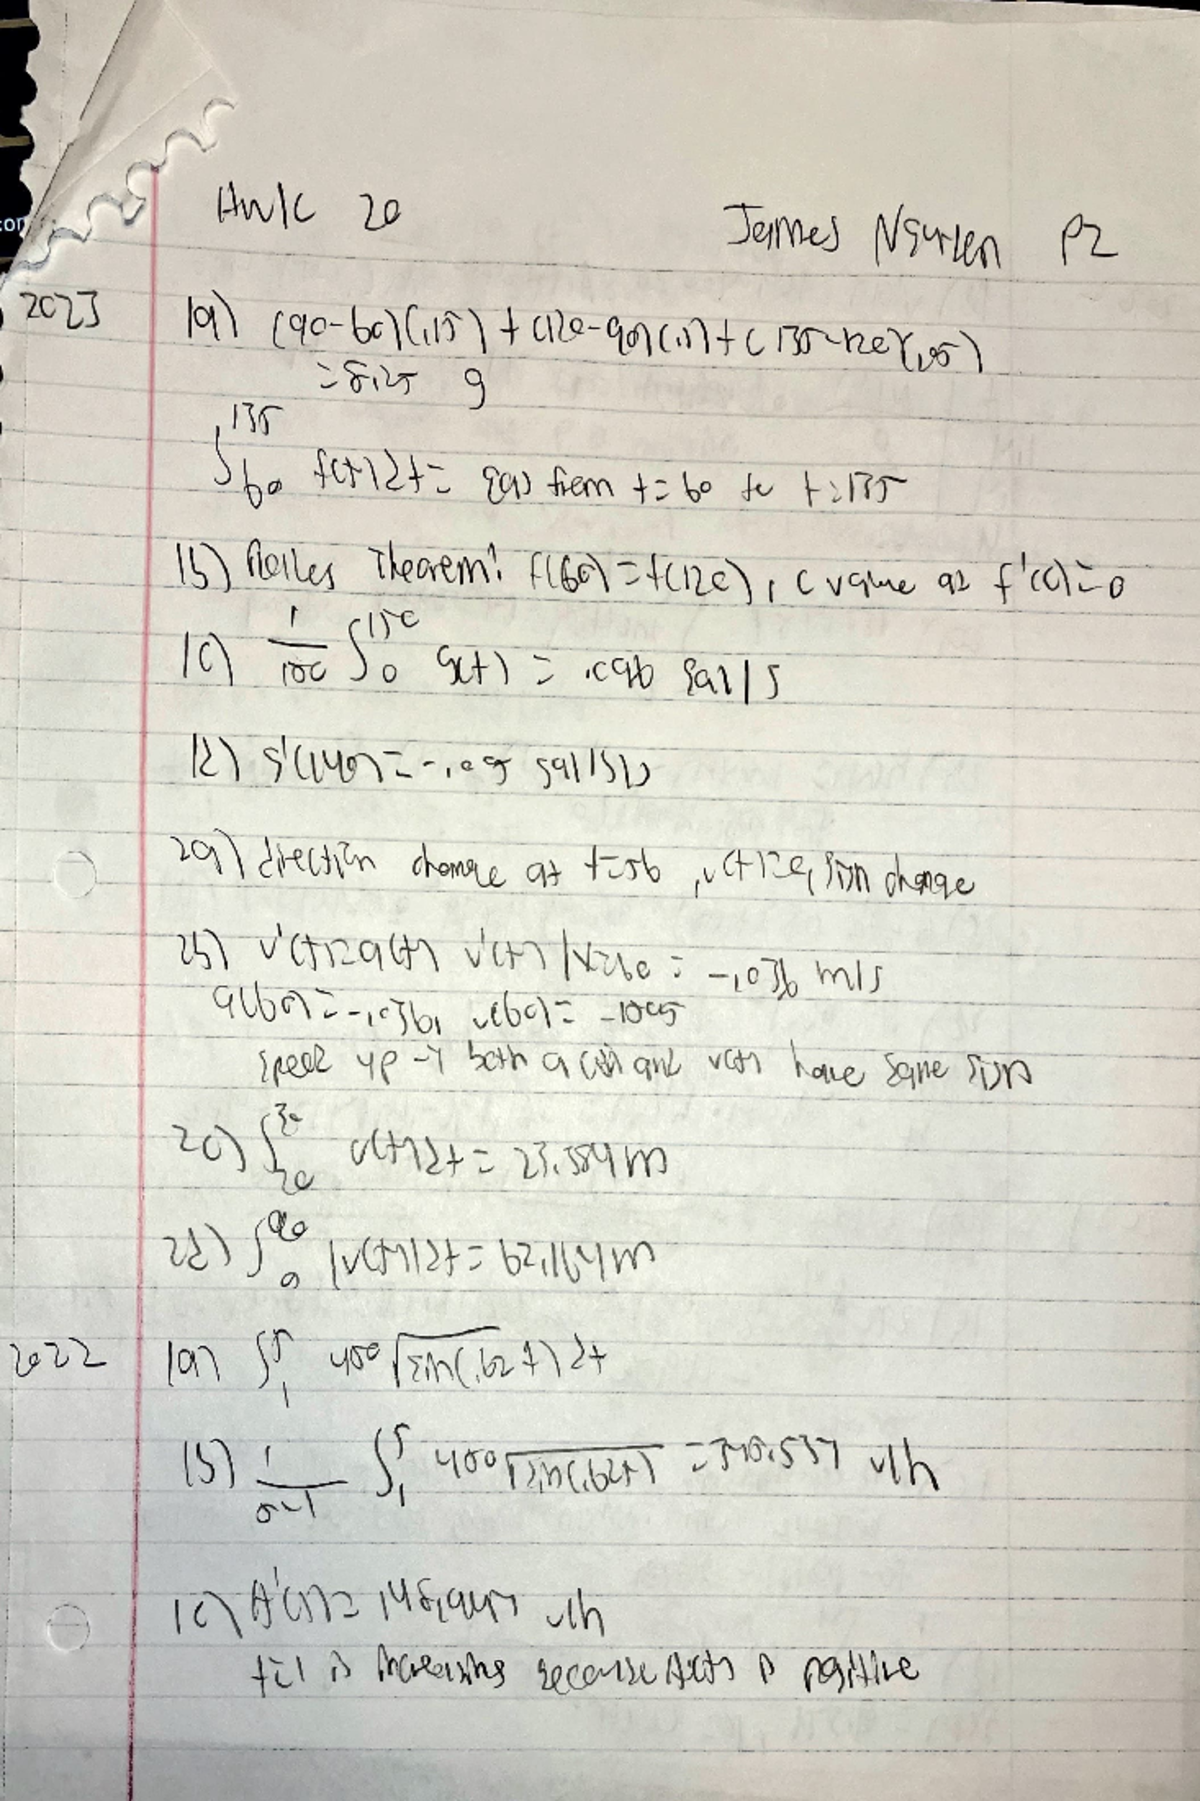 HWK 20
James Nguyen P2
2023
1a) (90-60)(.15) + (120-90)(.1) + (135-120)(.05)
= 8.25 g
∫₆₀¹³⁵ f(t)dt = gas from t=60 to t=135
1b) Rolles Theorem: f(60) = f(120), c value as f'(c)=0
1c) 1/150 ∫₀¹⁵⁰ g(t) = .096 gal/s
1d) g'(140) = -.005 gal/s/s
2a) direction change at t=56, v(t)=0, sign change
2b) v'(t)=a(t) v'(t)|t=60 = -.036 m/s
a(60) = -.036, v(60) =
speed up → both a(t) and v(t) have same sign
2c) ∫₂₀⁸⁰ v(t)dt = 23.384 m
2d) ∫₀⁹⁰ |v(t)|dt = 62.164 m
2022
1a) ∫₁⁵ 450√sin(.62t) dt
1b) 1/5-1 ∫₁⁵ 450√sin(.62t) = 375.537 v/h
1c) A'(1) = 148.947 v/h
t=1 is increasing because A'(t) is positive